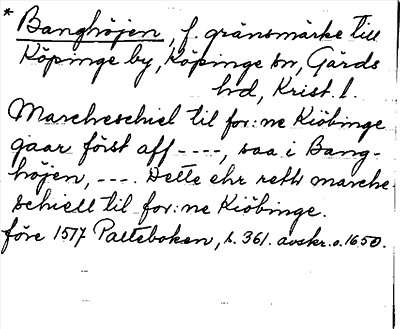 * Banghöjen, f. gränsmärke till
Köpinge by, Köpinge sn, Gärds
hd, Krist. l.
Marcheschiel til for:ne Kiöbinge
gaar först aff ----, saa i Bang-
höjen, ---. Dette ehr rett marche
schiell til for:ne Kiöbinge.
före 1517 Palteboken, s. 361. avskr. o. 1650.